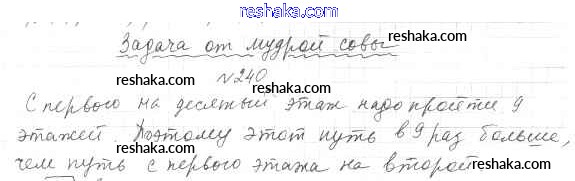 reshaka.com
Задача от мудрой совы
reshaka.com
№240
reshaka.com
С первого на десятый этаж надо пройти 9
reshaka.com
этажей. Поэтому этот путь в 9 раз больше,
чем путь с первого этажа на второй
reshaka.com
reshaka.com